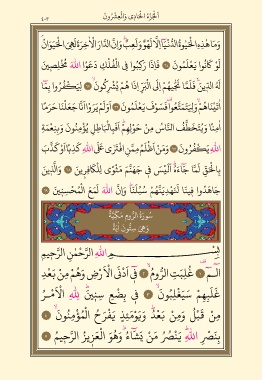 الجزء الحادي والعشرون ٤٠٣
وَمَا هٰذِهِ الْحَيٰوةُ الدُّنْيَٓا اِلَّا لَهْوٌ وَلَعِبٌ وَاِنَّ الدَّارَ الْاٰخِرَةَ لَهِيَ الْحَيَوَانُ
لَوْ كَانُوا يَعْلَمُونَ ﴿٦٤﴾ فَاِذَا رَكِبُوا فِي الْفُلْكِ دَعَوُا اللّٰهَ مُخْلِصِينَ
لَهُ الدِّينَ فَلَمَّا نَجّٰيهُمْ اِلَى الْبَرِّ اِذَا هُمْ يُشْرِكُونَ ﴿٦٥﴾ لِيَكْفُرُوا بِمَٓا
اٰتَيْنَاهُمْ وَلِيَتَمَتَّعُوا فَسَوْفَ يَعْلَمُونَ ﴿٦٦﴾ اَوَلَمْ يَرَوْا اَنَّا جَعَلْنَا حَرَمًا
اٰمِنًا وَيُتَخَطَّفُ النَّاسُ مِنْ حَوْلِهِمْ اَفَبِالْبَاطِلِ يُؤْمِنُونَ وَبِنِعْمَةِ
اللّٰهِ يَكْفُرُونَ ﴿٦٧﴾ وَمَنْ اَظْلَمُ مِمَّنِ افْتَرٰى عَلَى اللّٰهِ كَذِبًا اَوْ كَذَّبَ
بِالْحَقِّ لَمَّا جَٓاءَهُ اَلَيْسَ فِي جَهَنَّمَ مَثْوًى لِلْكَافِرِينَ ﴿٦٨﴾ وَالَّذِينَ
جَاهَدُوا فِينَا لَنَهْدِيَنَّهُمْ سُبُلَنَا وَاِنَّ اللّٰهَ لَمَعَ الْمُحْسِنِينَ ﴿٦٩﴾
سُورَةُ الرُّومِ مَكِّيَّةٌ
وَهِيَ سِتُّونَ اٰيَةً
بِسْمِ اللّٰهِ الرَّحْمٰنِ الرَّحِيمِ
الٓمٓ ﴿١﴾ غُلِبَتِ الرُّومُ ﴿٢﴾ فِٓي اَدْنَى الْاَرْضِ وَهُمْ مِنْ بَعْدِ
غَلَبِهِمْ سَيَغْلِبُونَ ﴿٣﴾ فِي بِضْعِ سِنِينَ لِلّٰهِ الْاَمْرُ
مِنْ قَبْلُ وَمِنْ بَعْدُ وَيَوْمَئِذٍ يَفْرَحُ الْمُؤْمِنُونَ ﴿٤﴾
بِنَصْرِ اللّٰهِ يَنْصُرُ مَنْ يَشَٓاءُ وَهُوَ الْعَزِيزُ الرَّحِيمُ ﴿٥﴾